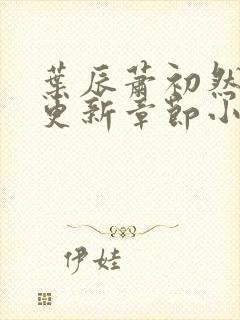 葉辰蕭初然
更新章節小
伊娃